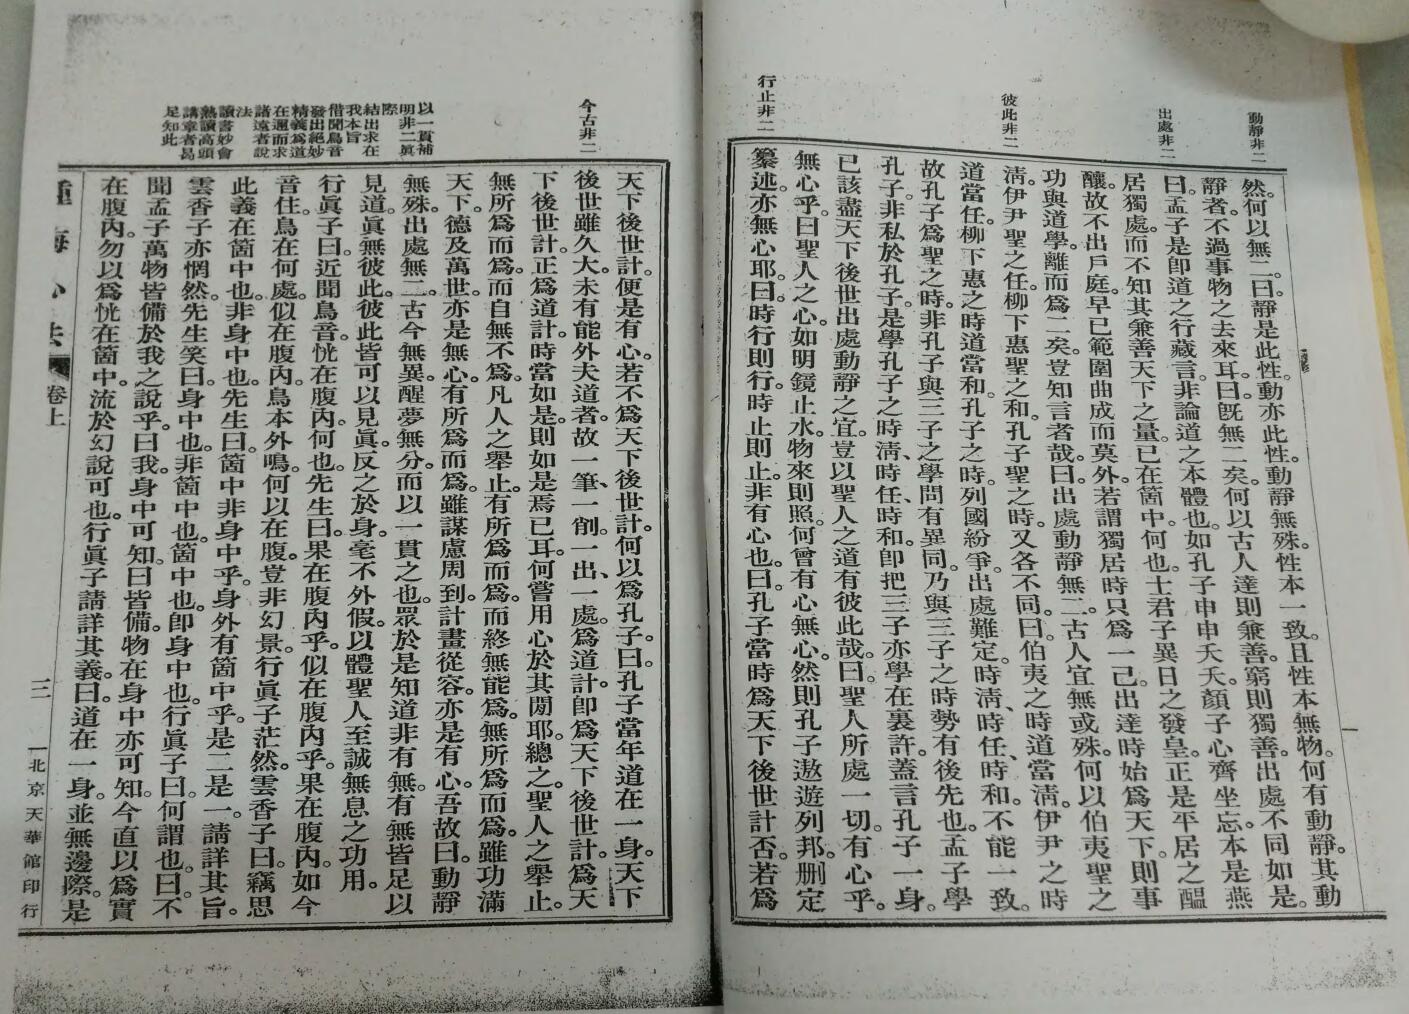 動靜非二
出處非二
彼此非二
行止非二
然。何以無二。曰靜是此性。動亦此性。動靜無殊。性本一致。且性本無物。何有動靜。其動
靜者。不過事物之去來耳。曰。旣無二矣。何以古人達則兼善。窮則獨善。出處不同如是。
曰。孟子是卽道之行藏言。非論道之本體也。如孔子申申夭夭。顏子心齊坐忘。本是燕
居獨處。而不知其兼善天下之量。已在箇中。何也。士君子異日之發皇。正是平居之醞
釀。故不出戶庭。早已範圍曲成而莫外。若謂獨居時只爲一己。出達時始爲天下。則事
功與道學。離而爲二矣。豈知言者哉。曰。出處動靜無二。古人宜無或殊。何以伯夷聖之
淸。伊尹聖之任。柳下惠聖之和。孔子聖之時。又各不同。曰。伯夷之時道當淸。伊尹之時
道當任。柳下惠之時道當和。孔子之時。列國紛爭。出處難定。時淸、時任、時和。不能一致。
故孔子爲聖之時。非孔子與三子之學問有異同。乃與三子之時勢有後先也。孟子學
孔子。非私於孔子。是學孔子之時淸、時任、時和。卽把三子亦學在裏許。蓋言孔子一身。
已該盡天下後世出處動靜之宜。豈以聖人之道有彼此哉。曰。聖人所處一切。有心乎。
無心乎。曰聖人之心。如明鏡止水。物來則照。何曾有心無心。然則孔子遨遊列邦。刪定
纂述。亦無心耶。曰。時行則行。時止則止。非有心也。曰。孔子當時爲天下後世計否。若爲
今古非二
以一貫補
明非二眞
際
結出求在
我本旨
借聞鳥音
發出絕妙
精義爲道
在邇而求
諸遠者說
法
讀書妙會
熟讀高頭
講章者曷
足知此
天下後世計。便是有心。若不爲天下後世計。何以爲孔子。曰。孔子當年道在一身。天下
後世雖久大。未有能外夫道者。故一筆一削。一出一處。爲道計。卽爲天下後世計。爲天
下後世計。正爲道計。時當如是。則如是焉已耳。何嘗用心於其閒耶。總之。聖人之舉止。
無所爲而爲。而自無不爲。凡人之舉止。有所爲而爲。而終無能爲。無所爲而爲。雖功滿
天下。德及萬世。亦是無心。有所爲而爲。雖謀慮周到。計畫從容。亦是有心。吾故曰。動靜
無殊。出處無二。古今無異。醒夢無分。而以一貫之也。眾於是知道非有無。有無皆足以
見道。眞無彼此。彼此皆可以見眞。反之於身。毫不外假。以體聖人至誠無息之功用。
行眞子曰。近聞鳥音。恍在腹內。何也。先生曰。果在腹內乎。似在腹內乎。果在腹內。如今
音住。鳥在何處。似在腹內。鳥本外鳴。何以在腹。豈非幻景。行眞子茫然。雲香子曰。竊思
此義在箇中也。非身中也。先生曰。箇中非身中乎。身外有箇中乎。是二是一。請詳其旨。
雲香子亦惘然。先生笑曰。身中也。非箇中也。箇中也。卽身中也。行眞子曰。何謂也。曰。不
聞孟子萬物皆備於我之說乎。曰我。身中可知。曰皆備。物在身中亦可知。今直以爲實
在腹內。勿以爲恍在箇中。流於幻說可也。行眞子請詳其義。曰。道在一身。並無邊際。是
卷上
三
北京天華館印行